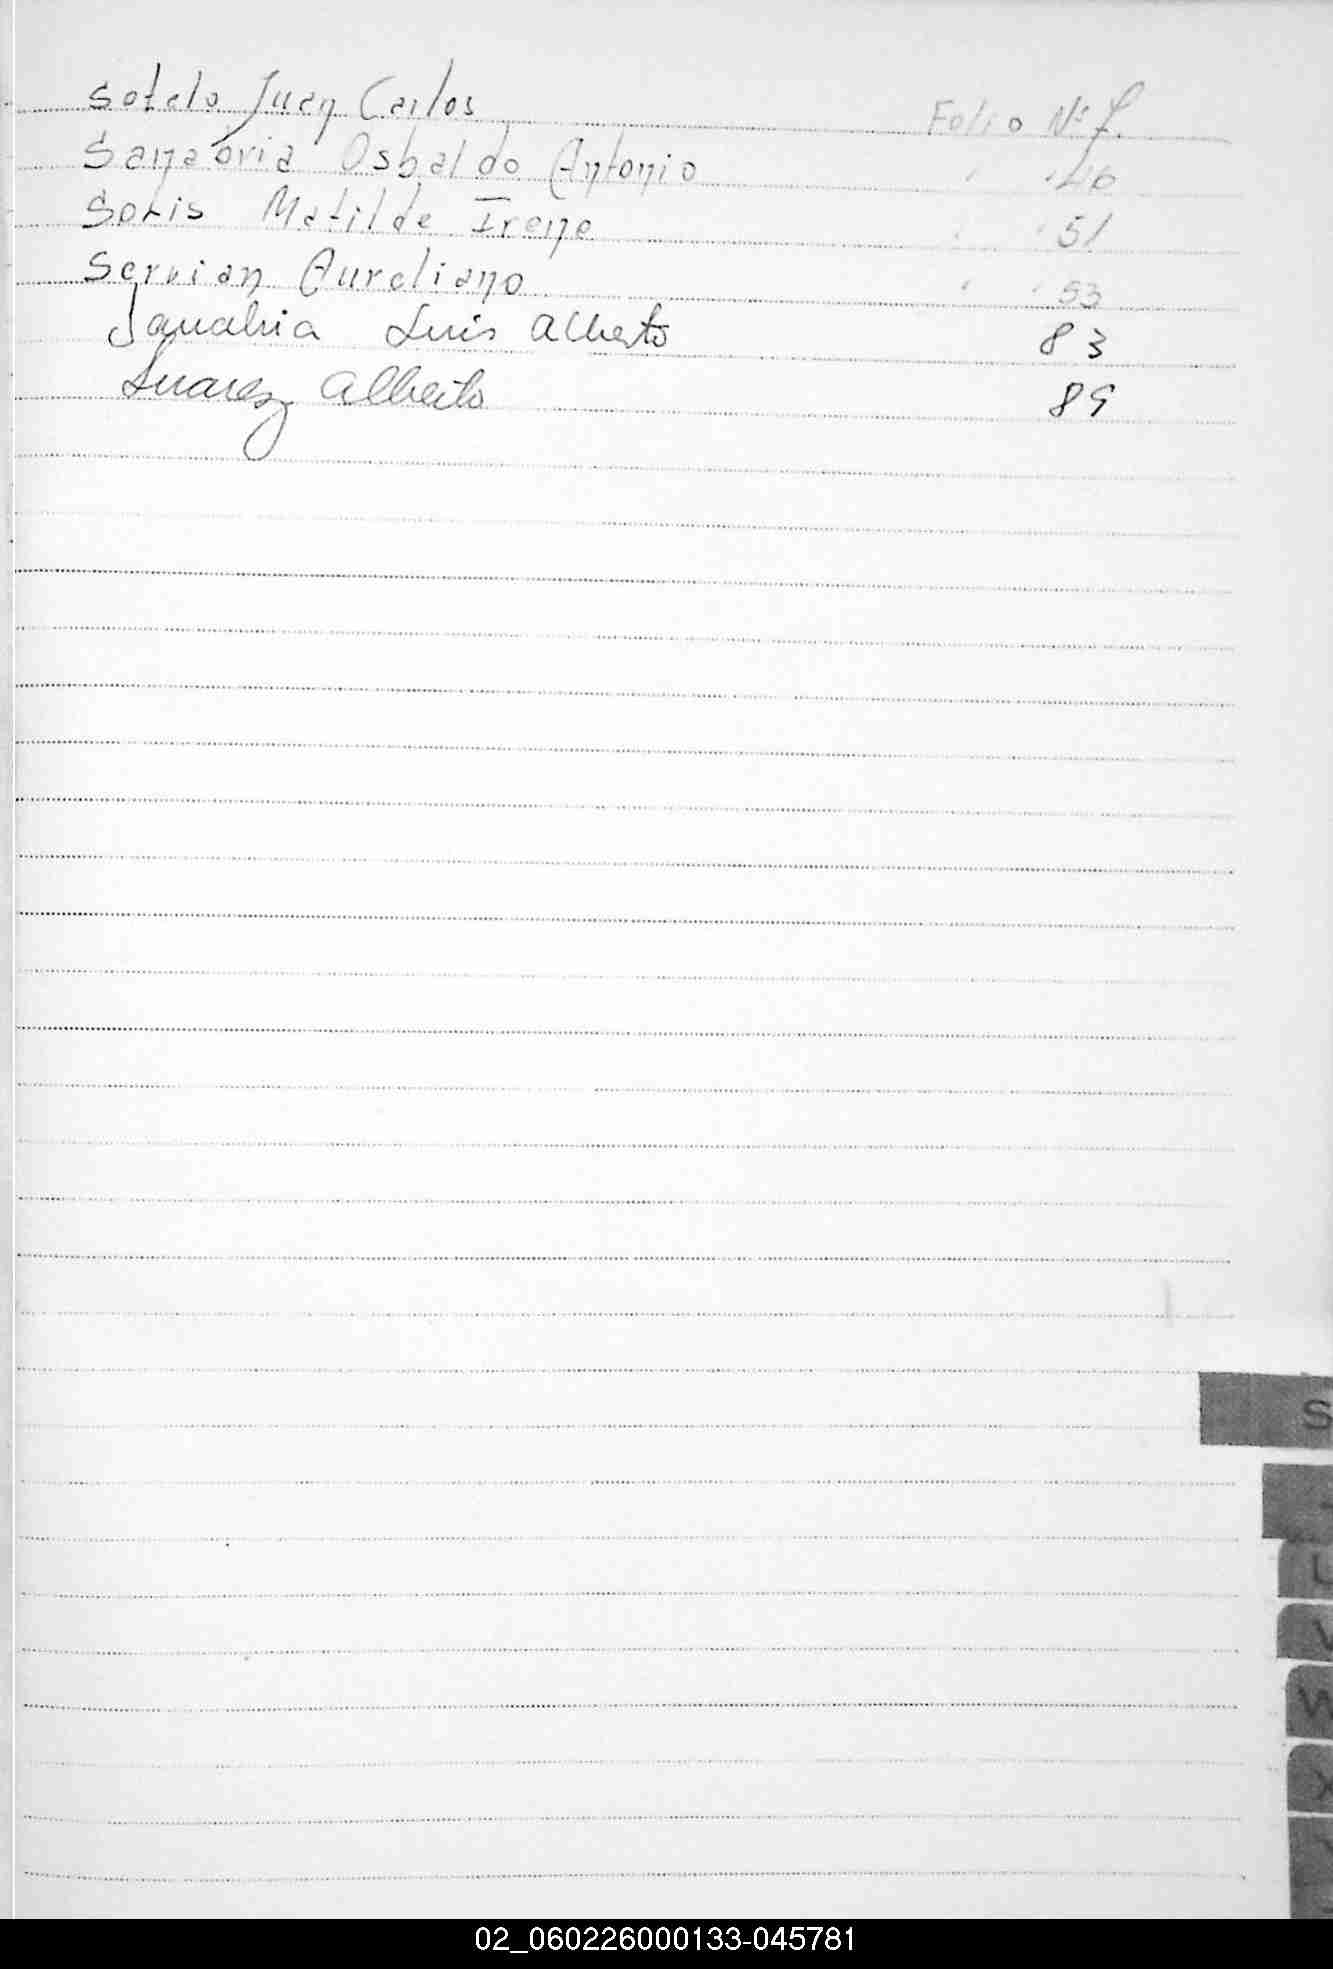 Sotelo Juan Carlos Folio Nº
Sanabria Osbaldo Antonio " " 46
Matilde Irene " " 51
Servian Aureliano " " 53
Sanabria Luis Alberto 83
Suarez Alberto 89
S
U
V
W
X
02_060226000133-045781